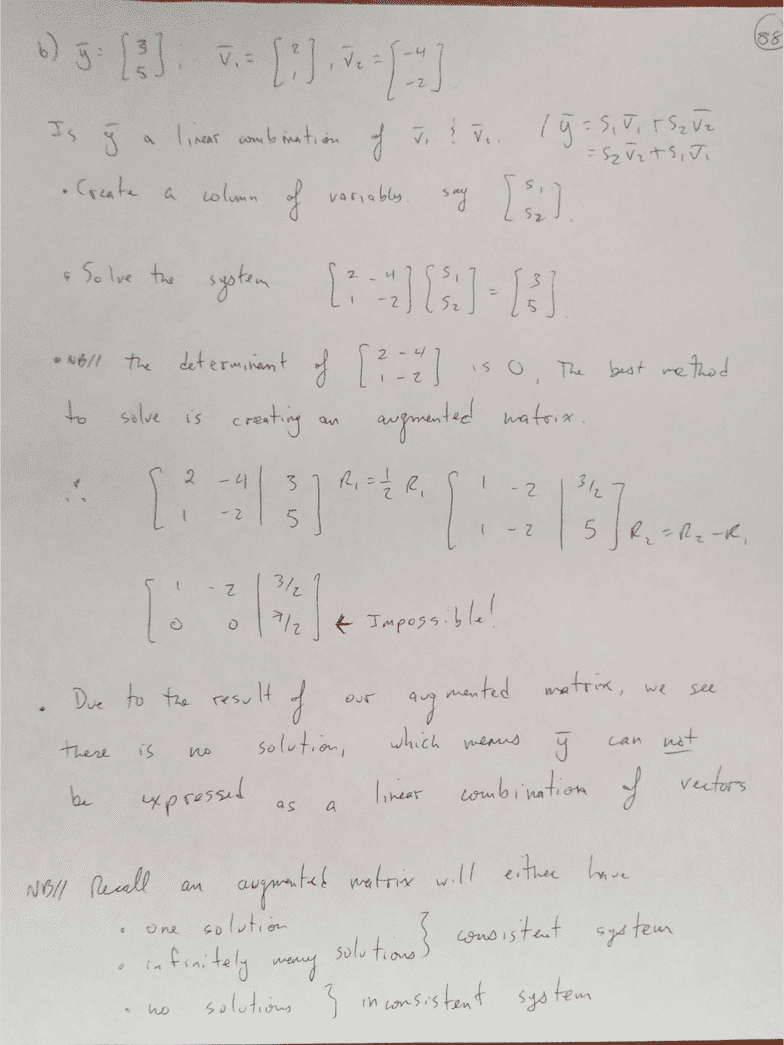 88
b) ȳ = [3 5], v̄₁ = [2 1], v̄₂ = [-4 -2]
Is ȳ a linear combination of v̄₁ & v̄₂. / ȳ = s₁v̄₁ + s₂v̄₂
= s₂v̄₂ + s₁v̄₁
• Create a column of variables, say [s₁ s₂].
• Solve the system [2 -4 1 -2] [s₁ s₂] = [3 5]
• NB// the determinant of [2 -4 1 -2] is 0, The best method
to solve is creating an augmented matrix.
∴ [2 -4 | 3 1 -2 | 5] R₁ = ½ R₁ [1 -2 | 3/2 1 -2 | 5] R₂ = R₂ - R₁
[1 -2 | 3/2 0 0 | 7/2] ← Impossible!
• Due to the result of our augmented matrix, we see
there is no solution, which means ȳ can not
be expressed as a linear combination of vectors
NB// Recall an augmented matrix will either have
• one solution
• infinitely many solutions } consistent system
• no solutions } inconsistent system